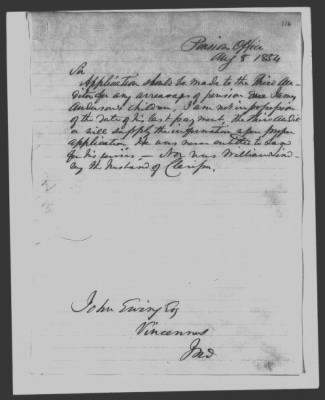 116
Pension Office
Aug 5. 1854
Sir
Application should be made to the Third Au-
ditor for any arrearages of pension due James
Anderson's children, I am not in possession
of the date of his last payment, the third Audit-
or will supply the information upon proper
application. He was never entitled to Land
for his services — Nor was William Lind-
say the husband of
John Ewing Esq
Vincennes
Ind